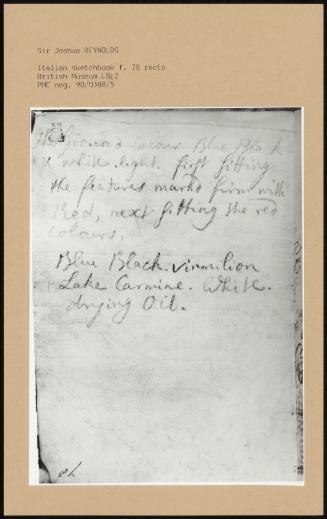 Sir Joshua REYNOLDS
Italian sketchbook f. 78 recto
British Museum LB12
PMC neg. 90/0388/5
the Ground colour Blue Black
& white light. first sitting
the features markd firm with
Red, next sitting the red
colours.
Blue Black. virmilion
Lake Carmine. White.
drying Oil.